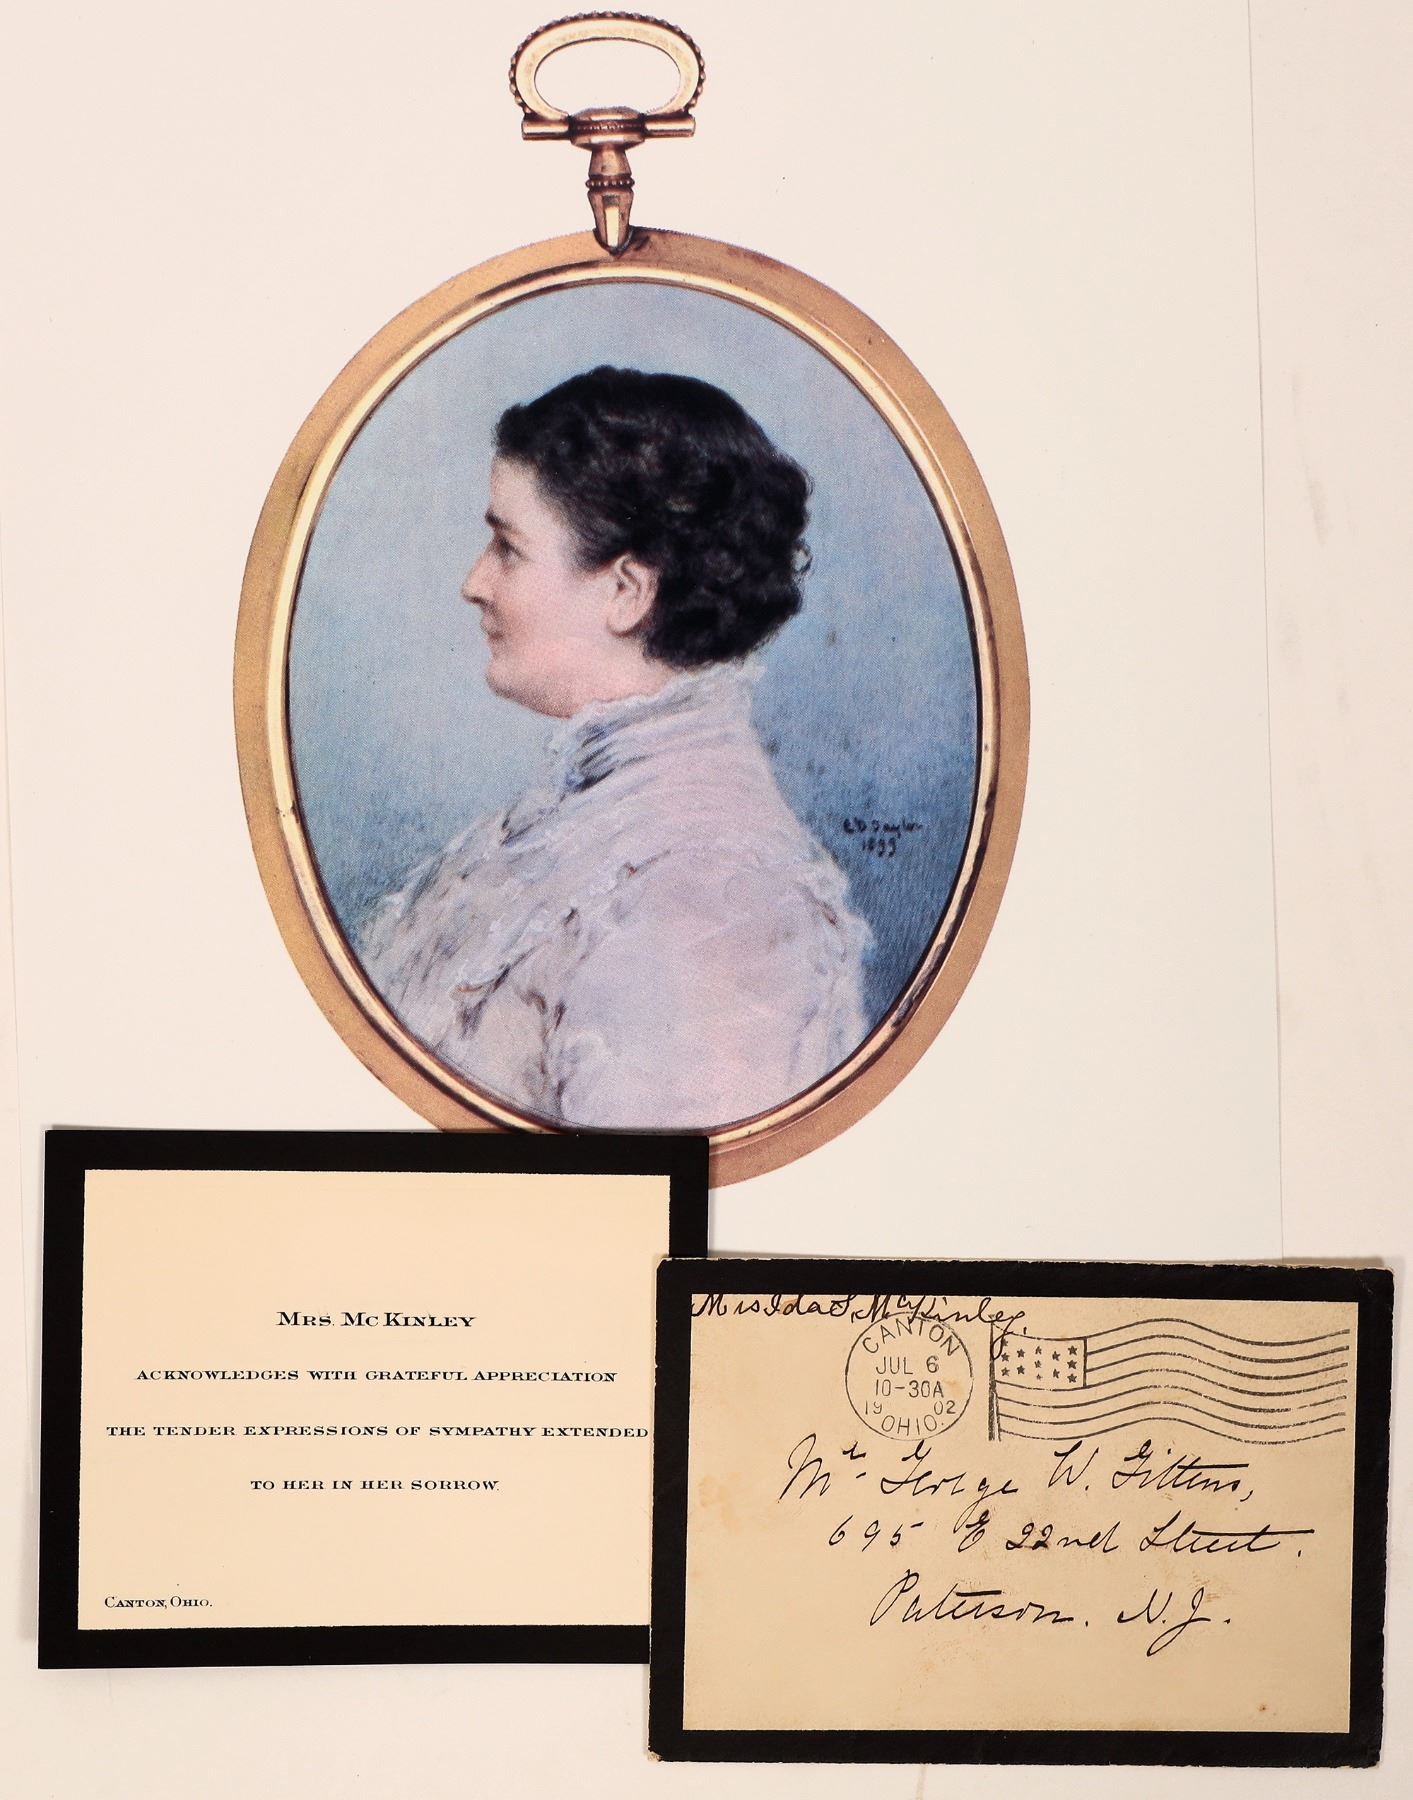 E D Taylor
1899
MRS. MCKINLEY
ACKNOWLEDGES WITH GRATEFUL APPRECIATION
THE TENDER EXPRESSIONS OF SYMPATHY EXTENDED
TO HER IN HER SORROW.
CANTON, OHIO.
Mrs Ida S. McKinley.
CANTON
JUL 6
10-30A
19 02
OHIO.
Mr. George W. Gittens,
695 E 22nd Street.
Paterson. N.J.